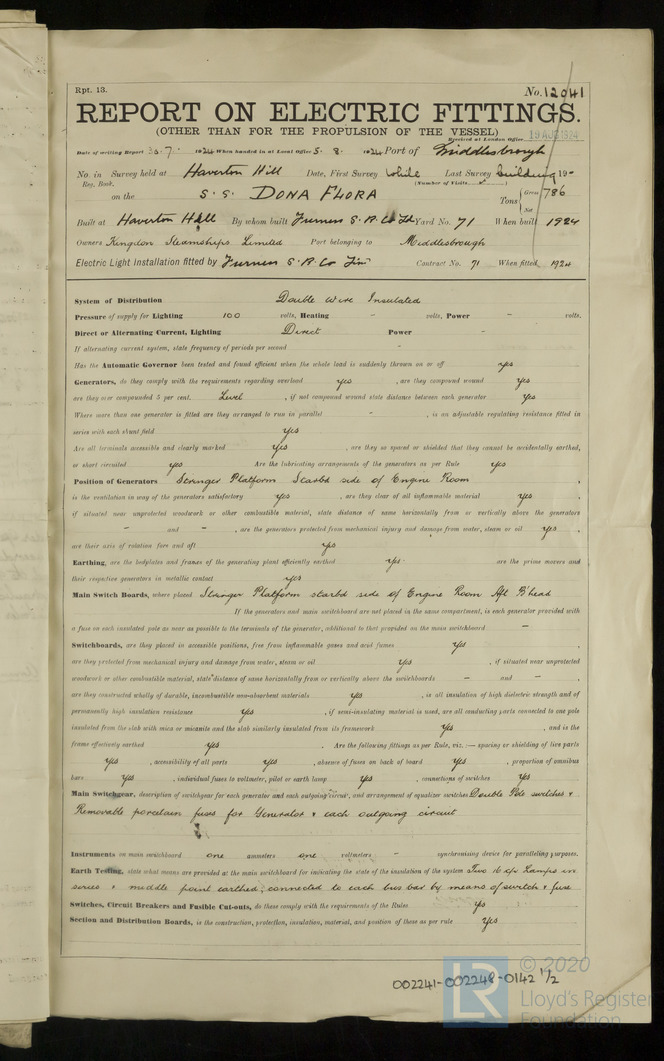 Rpt. 13.
No. 12041
REPORT ON ELECTRIC FITTINGS.
(OTHER THAN FOR THE PROPULSION OF THE VESSEL)
Received at London Office 19 AUG 1924
Date of writing Report 30. 7. 1924 When handed in at Local Office 5. 8. 1924 Port of Middlesbrough
No. in Survey held at Haverton Hill Date, First Survey While Last Survey building 19-
Reg. Book. (Number of Visits )
on the S. S. DONA FLORA Tons { Gross 786
Net
Built at Haverton Hill By whom built Furness S. B. Co Ld Yard No. 71 When built 1924
Owners Kingdon Steamships Limited Port belonging to Middlesbrough
Electric Light Installation fitted by Furness S. B. Co Contract No. 71 When fitted 1924
System of Distribution Double Wire Insulated
Pressure of supply for Lighting 100 volts, Heating - volts, Power - volts.
Direct or Alternating Current, Lighting Direct Power -
If alternating current system, state frequency of periods per second -
Has the Automatic Governor been tested and found efficient when the whole load is suddenly thrown on or off yes
Generators, do they comply with the requirements regarding overload yes , are they compound wound yes
are they over compounded 5 per cent. Level , if not compound wound state distance between each generator yes
Where more than one generator is fitted are they arranged to run in parallel - , is an adjustable regulating resistance fitted in
series with each shunt field yes
Are all terminals accessible and clearly marked yes , are they so spaced or shielded that they cannot be accidentally earthed,
or short circuited yes Are the lubricating arrangements of the generators as per Rule yes
Position of Generators Stringer Platform Starbd side of Engine Room ,
is the ventilation in way of the generators satisfactory yes , are they clear of all inflammable material yes ,
if situated near unprotected woodwork or other combustible material, state distance of same horizontally from or vertically above the generators
- and - , are the generators protected from mechanical injury and damage from water, steam or oil yes ,
are their axis of rotation fore and aft yes
Earthing, are the bedplates and frames of the generating plant efficiently earthed yes are the prime movers and
their respective generators in metallic contact yes
Main Switch Boards, where placed Stringer Platform starbd side of Engine Room Aft B'head
If the generators and main switchboard are not placed in the same compartment, is each generator provided with
a fuse on each insulated pole as near as possible to the terminals of the generator, additional to that provided on the main switchboard -
Switchboards, are they placed in accessible positions, free from inflammable gases and acid fumes yes ,
are they protected from mechanical injury and damage from water, steam or oil yes , if situated near unprotected
woodwork or other combustible material, state distance of same horizontally from or vertically above the switchboards - and - ,
are they constructed wholly of durable, incombustible non-absorbent materials yes , is all insulation of high dielectric strength and of
permanently high insulation resistance yes , if semi-insulating material is used, are all conducting parts connected to one pole
insulated from the slab with mica or micanite and the slab similarly insulated from its framework yes , and is the
frame effectively earthed yes . Are the following fittings as per Rule, viz. :— spacing or shielding of live parts
yes , accessibility of all parts yes , absence of fuses on back of board yes , proportion of omnibus
bars yes , individual fuses to voltmeter, pilot or earth lamp yes , connections of switches yes
Main Switchgear, description of switchgear for each generator and each outgoing circuit, and arrangement of equalizer switches Double Pole switches &
Removable porcelain fuses for Generator & each outgoing circuit
Instruments on main switchboard one ammeters one voltmeters - synchronising device for paralleling purposes.
Earth Testing, state what means are provided at the main switchboard for indicating the state of the insulation of the system Two 16 cp Lamps in
series & middle point earthed; connected to each bus bar by means of switch & fuse
Switches, Circuit Breakers and Fusible Cut-outs, do these comply with the requirements of the Rules yes
Section and Distribution Boards, is the construction, protection, insulation, material, and position of these as per rule yes
002241-002248-0142 1/2
LR
© 2020
Lloyd's Register
Foundation